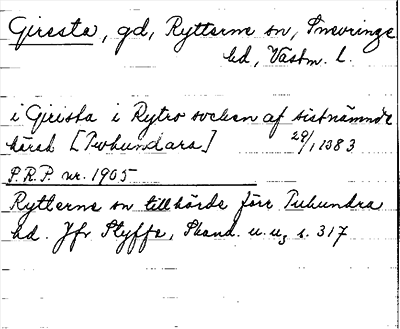 Giresta, gd, Rytterne sn, Snevringe
hd, Västm. l.
i Girista i Rytro socken af sistnämnde
härad [Twhundara] 29/1 1383
P.R.P. nr. 1905
Rytterne sn tillhörde förr Tuhundra
hd. Jfr Styffe, Skand. u. u₃ s. 317